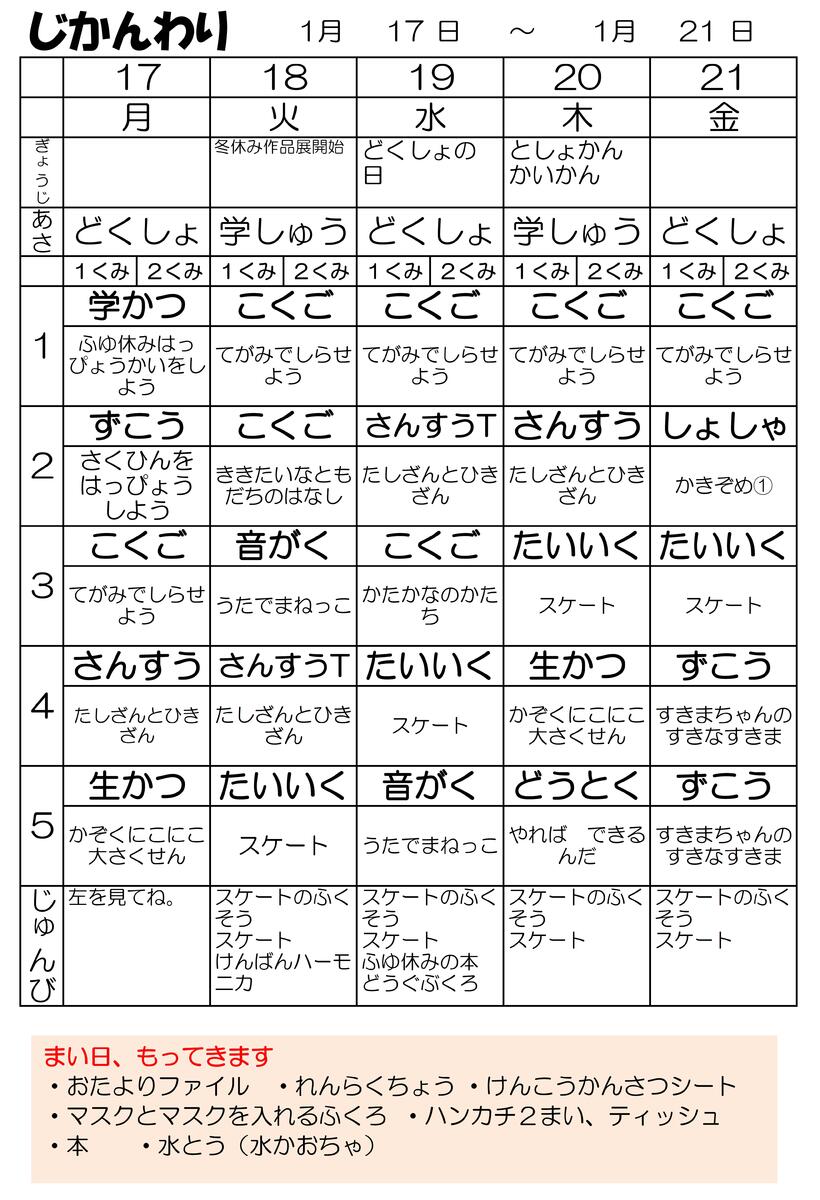 じかんわり 1月 17 日 ～ 1月 21 日
17 18 19 20 21
月 火 水 木 金
ぎょうじ
冬休み作品展開始
どくしょの
日
としょかん
かいかん
あさ
どくしょ 学しゅう どくしょ 学しゅう どくしょ
1くみ 2くみ 1くみ 2くみ 1くみ 2くみ 1くみ 2くみ 1くみ 2くみ
1
学かつ こくご こくご こくご こくご
ふゆ休みはっ
ぴょうかいをし
よう
てがみでしらせ
よう
てがみでしらせ
よう
てがみでしらせ
よう
てがみでしらせ
よう
2
ずこう こくご さんすうT さんすう しょしゃ
さくひんを
はっぴょう
しよう
ききたいなとも
だちのはなし
たしざんとひき
ざん
たしざんとひき
ざん
かきぞめ①
3
こくご 音がく こくご たいいく たいいく
てがみでしらせ
よう
うたでまねっこ
かたかなのかた
ち
スケート
スケート
4
さんすう さんすうT たいいく 生かつ ずこう
たしざんとひき
ざん
たしざんとひき
ざん
スケート
かぞくにこにこ
大さくせん
すきまちゃんの
すきなすきま
5
生かつ たいいく 音がく どうとく ずこう
かぞくにこにこ
大さくせん
スケート
うたでまねっこ
やれば　できる
んだ
すきまちゃんの
すきなすきま
じゅんび
左を見てね。
スケートのふく
そう
スケート
けんばんハーモ
ニカ
スケートのふく
そう
スケート
ふゆ休みの本
どうぐぶくろ
スケートのふく
そう
スケート
スケートのふく
そう
スケート
まい日、もってきます
・おたよりファイル　・れんらくちょう ・けんこうかんさつシート
・マスクとマスクを入れるふくろ　・ハンカチ２まい、ティッシュ
・本　　・水とう（水かおちゃ）